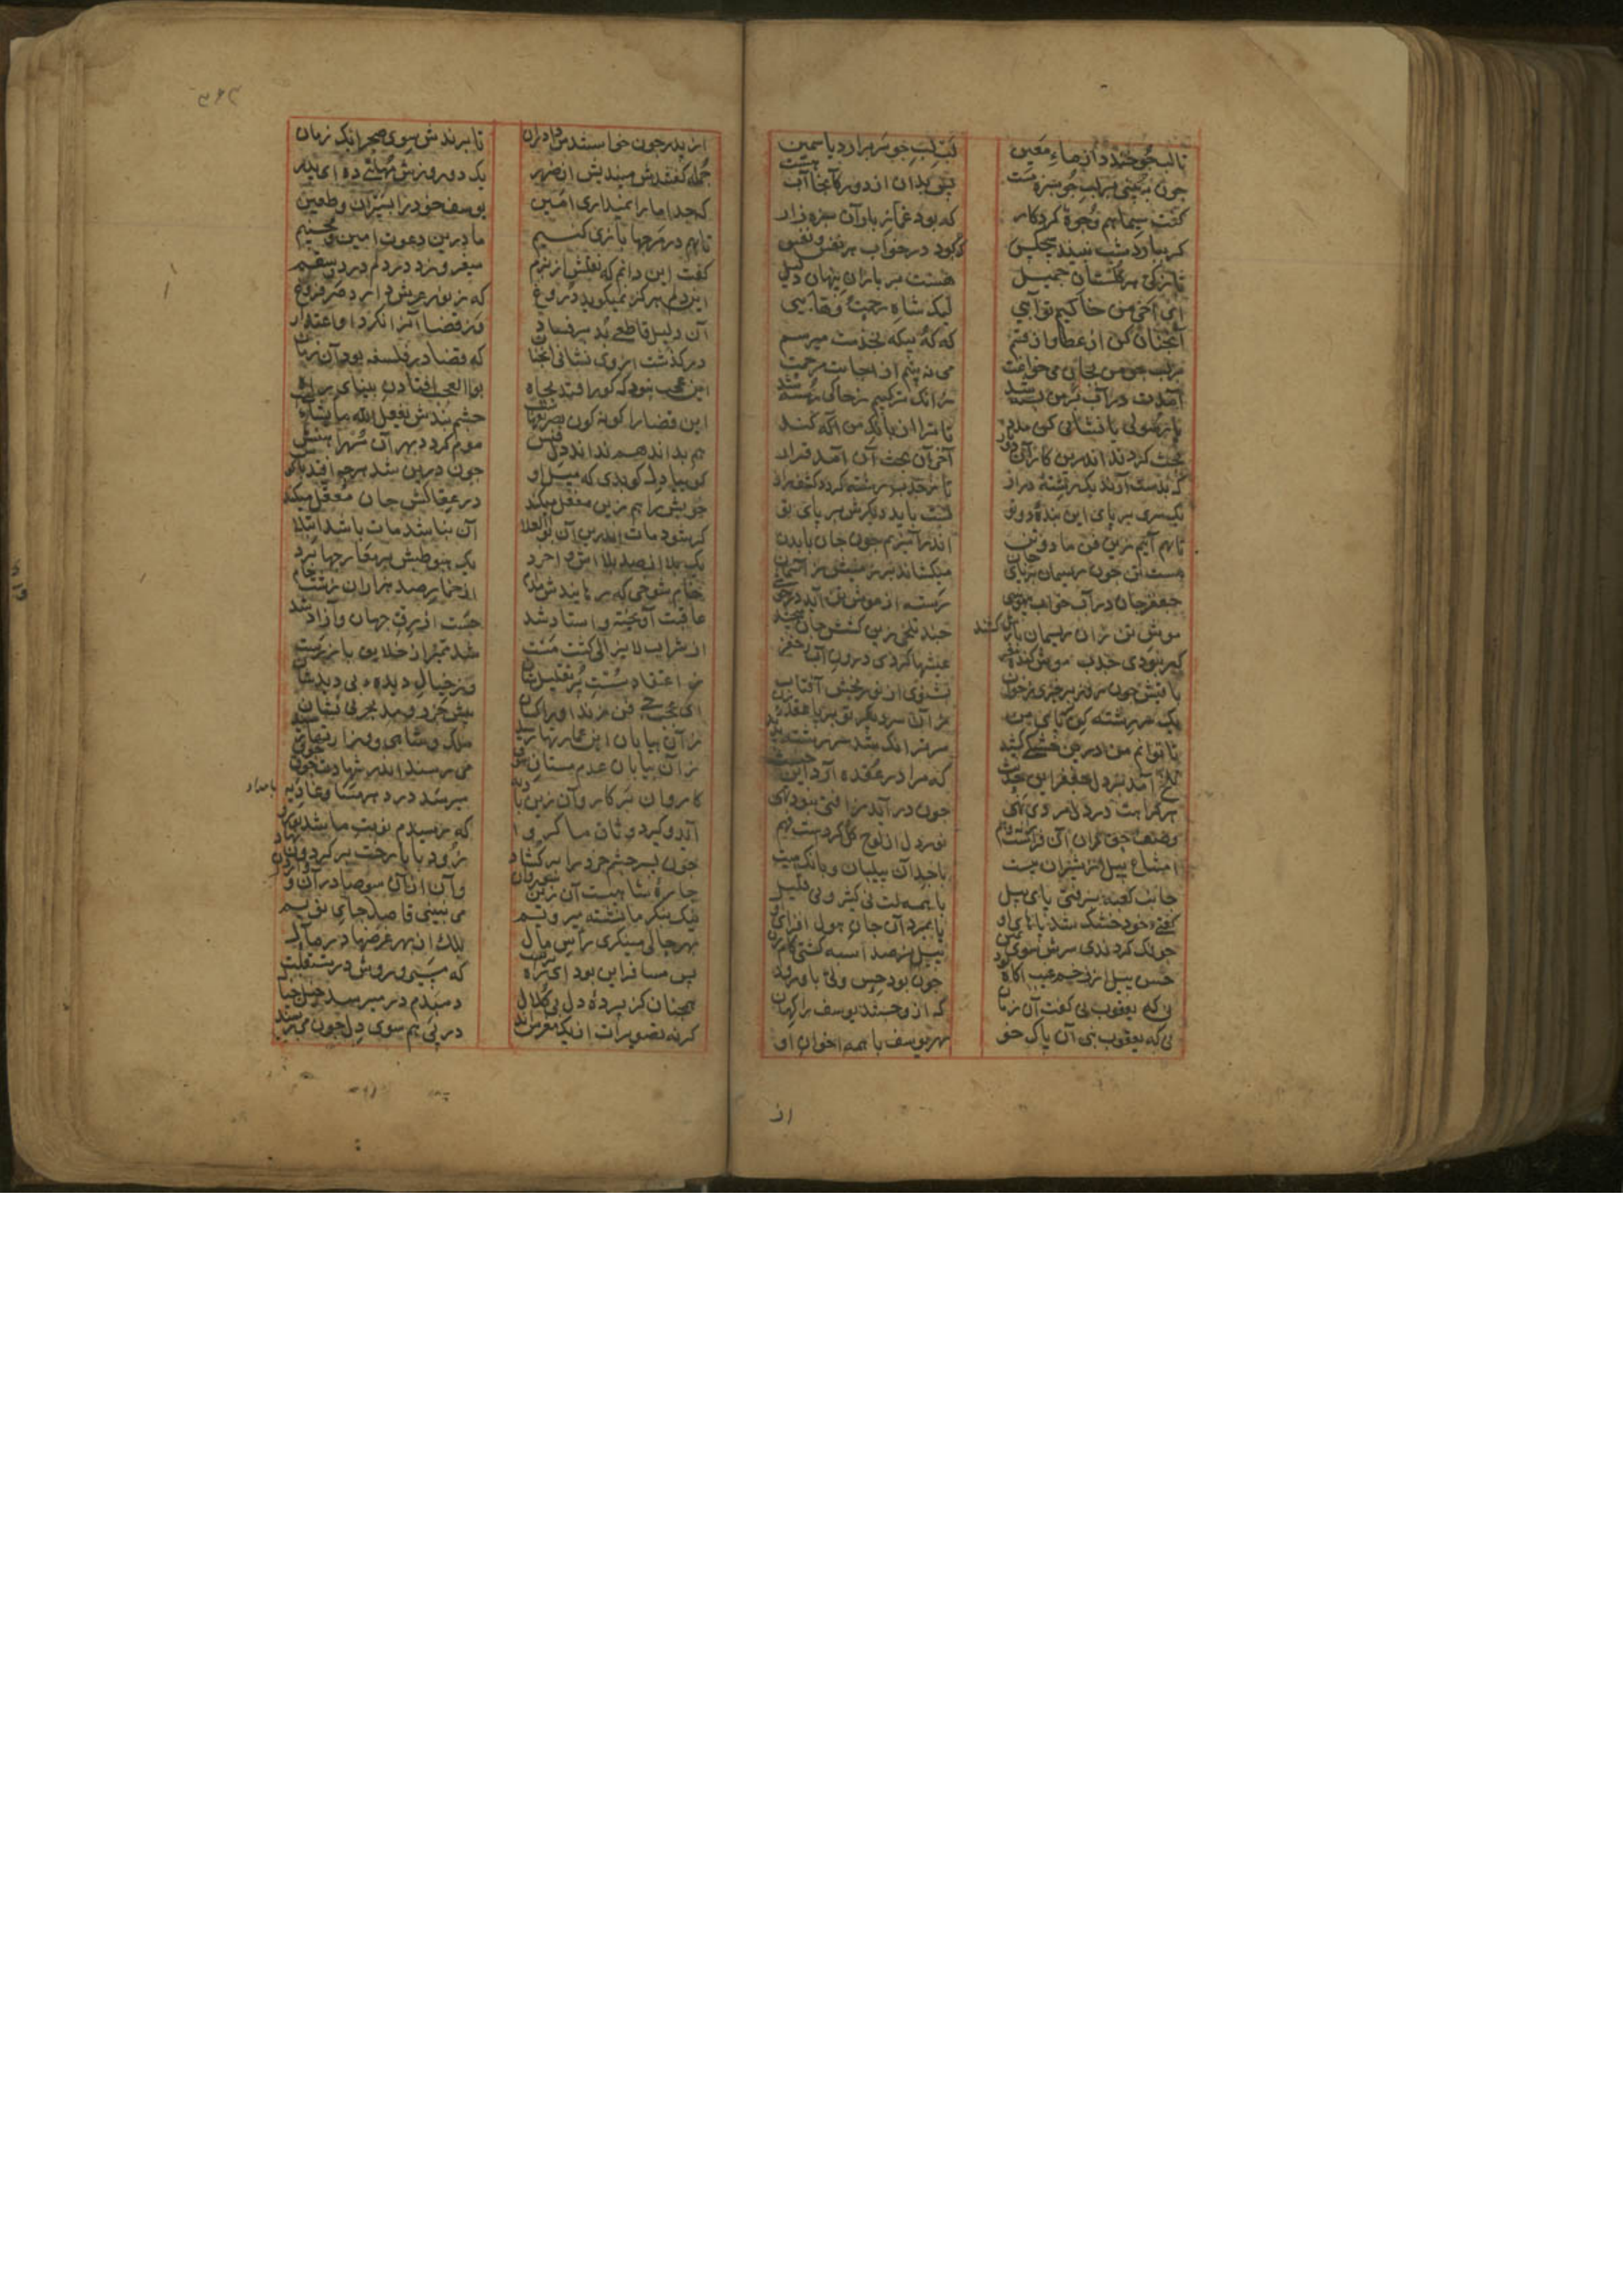 تالب جو خندد از ماء معین لب لب جو سر برارد یاسمین
چون ببینی بر لب جو سبزه مست پس بدان از دور کانجا آب هست
گفت سیماهم وجوه کردکار که بود غماز باران سبزه زار
کر ببارد شب نبیند هیچکس که بود در خواب هر نفس و نفس
تازکی هر کلستان جمیل هست بر باران پنهان دلیل
ای اخی من خاکیم تو آبی لیک شاه رحمت و وهابی
آنچنان کن از عطا و از قسم که که و بیکه بخدمت میرسم
بر لب جو من بجان می خوانمت می نه بینم از اجابت مرحمت
آمدن در آب بر من بسته شد زانک ترکیبم ز خاکی رسته شد
یا رسولی یا نشانی کن مدد تا ترا از بانک من آکه کند
بحث کردند اندرین کار آن دو یار آخر آن بحث آن آمد قرار
که بدست آرند یک رشته دراز تا ز جذب رشته کردد کشف راز
یک سری بر پای این بنده دوتو بست باید دیکرش بر پای تو
تا بهم آییم زین فن ما دو تن اندر آمیزیم چون جان با بدن
هست تن چون ریسمان بر پای جان میکشاند بر زمینش ز آسمان
چغز جان در آب خواب بیهشی رسته از موش تن آید در خوشی
موش تن زان ریسمان بازش کشد چند تلخی زین کشش جان میچشد
کر نبودی جذب موش کنده مغز عیشها کردی درون آب چغز
باقیش چون روز برخیزی ز خواب بشنوی از نور بخش آفتاب
یک سر رشته کره بر پای من زان سر دیکر تو بر پا عقده زن
تا توانم من درین خشکی کشید مر ترا نک شد سر رشته پدید
تلخ آمد بر دل چغز این حدیث که مرا در عقده آرد این خبیث
هر کراهت در دل مرد بهی چون در آید از فنی نبود تهی
وصف حق دان آن فراست را نه وهم نور دل از لوح کل کردست فهم
امتناع پیل از سیران ببیت با جد آن پیلبان و بانک هیت
جانب کعبه نرفتی پای پیل با همه لت نی کثیر و نی قلیل
کفتیی خود خشک شد پاهای او یا بمرد آن جان هول افزای او
چونک کردندی سرش سوی یمن پیل نر صد اسبه کشتی کام زن
حس پیل از زخم غیب آکاه بود چون بود حس ولی با ورود
نی که یعقوب نبی آن پاک خو بهر یوسف با همه اخوان او
از
از پدر چون خواستندش دادران تا برندش سوی صحرا یک زمان
جمله کفتندش میندیش از ضرر یک دو روزش مهلتی ده ای پدر
که چرا ما را نمیداری امین یوسف خود را بسیران و ظعین
تا بهم در مرجها بازی کنیم ما درین دعوت امین و محسنیم
کفت این دانم که نقلش از برم میفروزد در دلم درد و سقم
این دلم هرکز نمیکوید دروغ که ز نور عرش دارد دل فروغ
آن دلیل قاطعی بد بر فساد وز قضا آنرا نکرد او اعتداد
در کذشت از وی نشانی آنچنان که قضا در فلسفه بود آن زمان
این عجب نبود که کور افتد بچاه بوالعجب افتادن بینای راه
این قضا را کونه کون تصریفهاست چشم بندش یفعل الله ما یشاست
هم بداند هم نداند دل فنش موم کردد بهر آن مهر آهنش
کوییا دل کویدی که میل او چون درین شد هرچه افتد باش کو
خویش را هم زین مغفل میکند در عقالش جان معقل میکند
کر شود مات اندرین آن بوالعلا آن نباشد مات باشد ابتلا
یک بلا از صد بلااش وا خرد یک هبوطش بر معارجها برد
خام شوخی که رهانیدش مدام از خمار صد هزاران زشت خام
عاقبت او پخته و استاد شد جست از رق جهان و آزاد شد
از شراب لایزالی کشت مست شد ممیز از خلایق باز رست
ز اعتقاد سست پر تقلیدشان وز خیال دیده بی دیدشان
ای عجب چه فن زند ادراکشان پیش جزر و مد بحر بی نشان
زان بیابان این عمارتها رسید ملک و شاهی و وزارتها رسید
زان بیابان عدم مشتاق شوق می رسند اندر شهادت جوق جوق
کاروان بر کاروان زین بادیه میرسد در هر مسا و غادیه
بامداد
آید و کیرد وثاق ما کرو که رسیدم نوبت ما شد تو رو
چون پسر چشم خرد را برکشاد زود بابا رخت بر کردون نهاد
جاده شاهست آن زین سو روان وآن از آن سو صادران و واردان
نیک بنکر ما نشسته میرویم می نبینی قاصد جای نویم
بهر حالی مینکری راس مال بلک از بهر غرضها در مآل
پس مسافر این بود ای ره پرست که مسیر و روش در مستقبلست
همچنان کز پرده دل بی کلال دمبدم در میرسد خیل خیال
کرنه تصویرات از یک مغرس اند در پی هم سوی دل چون میرسند